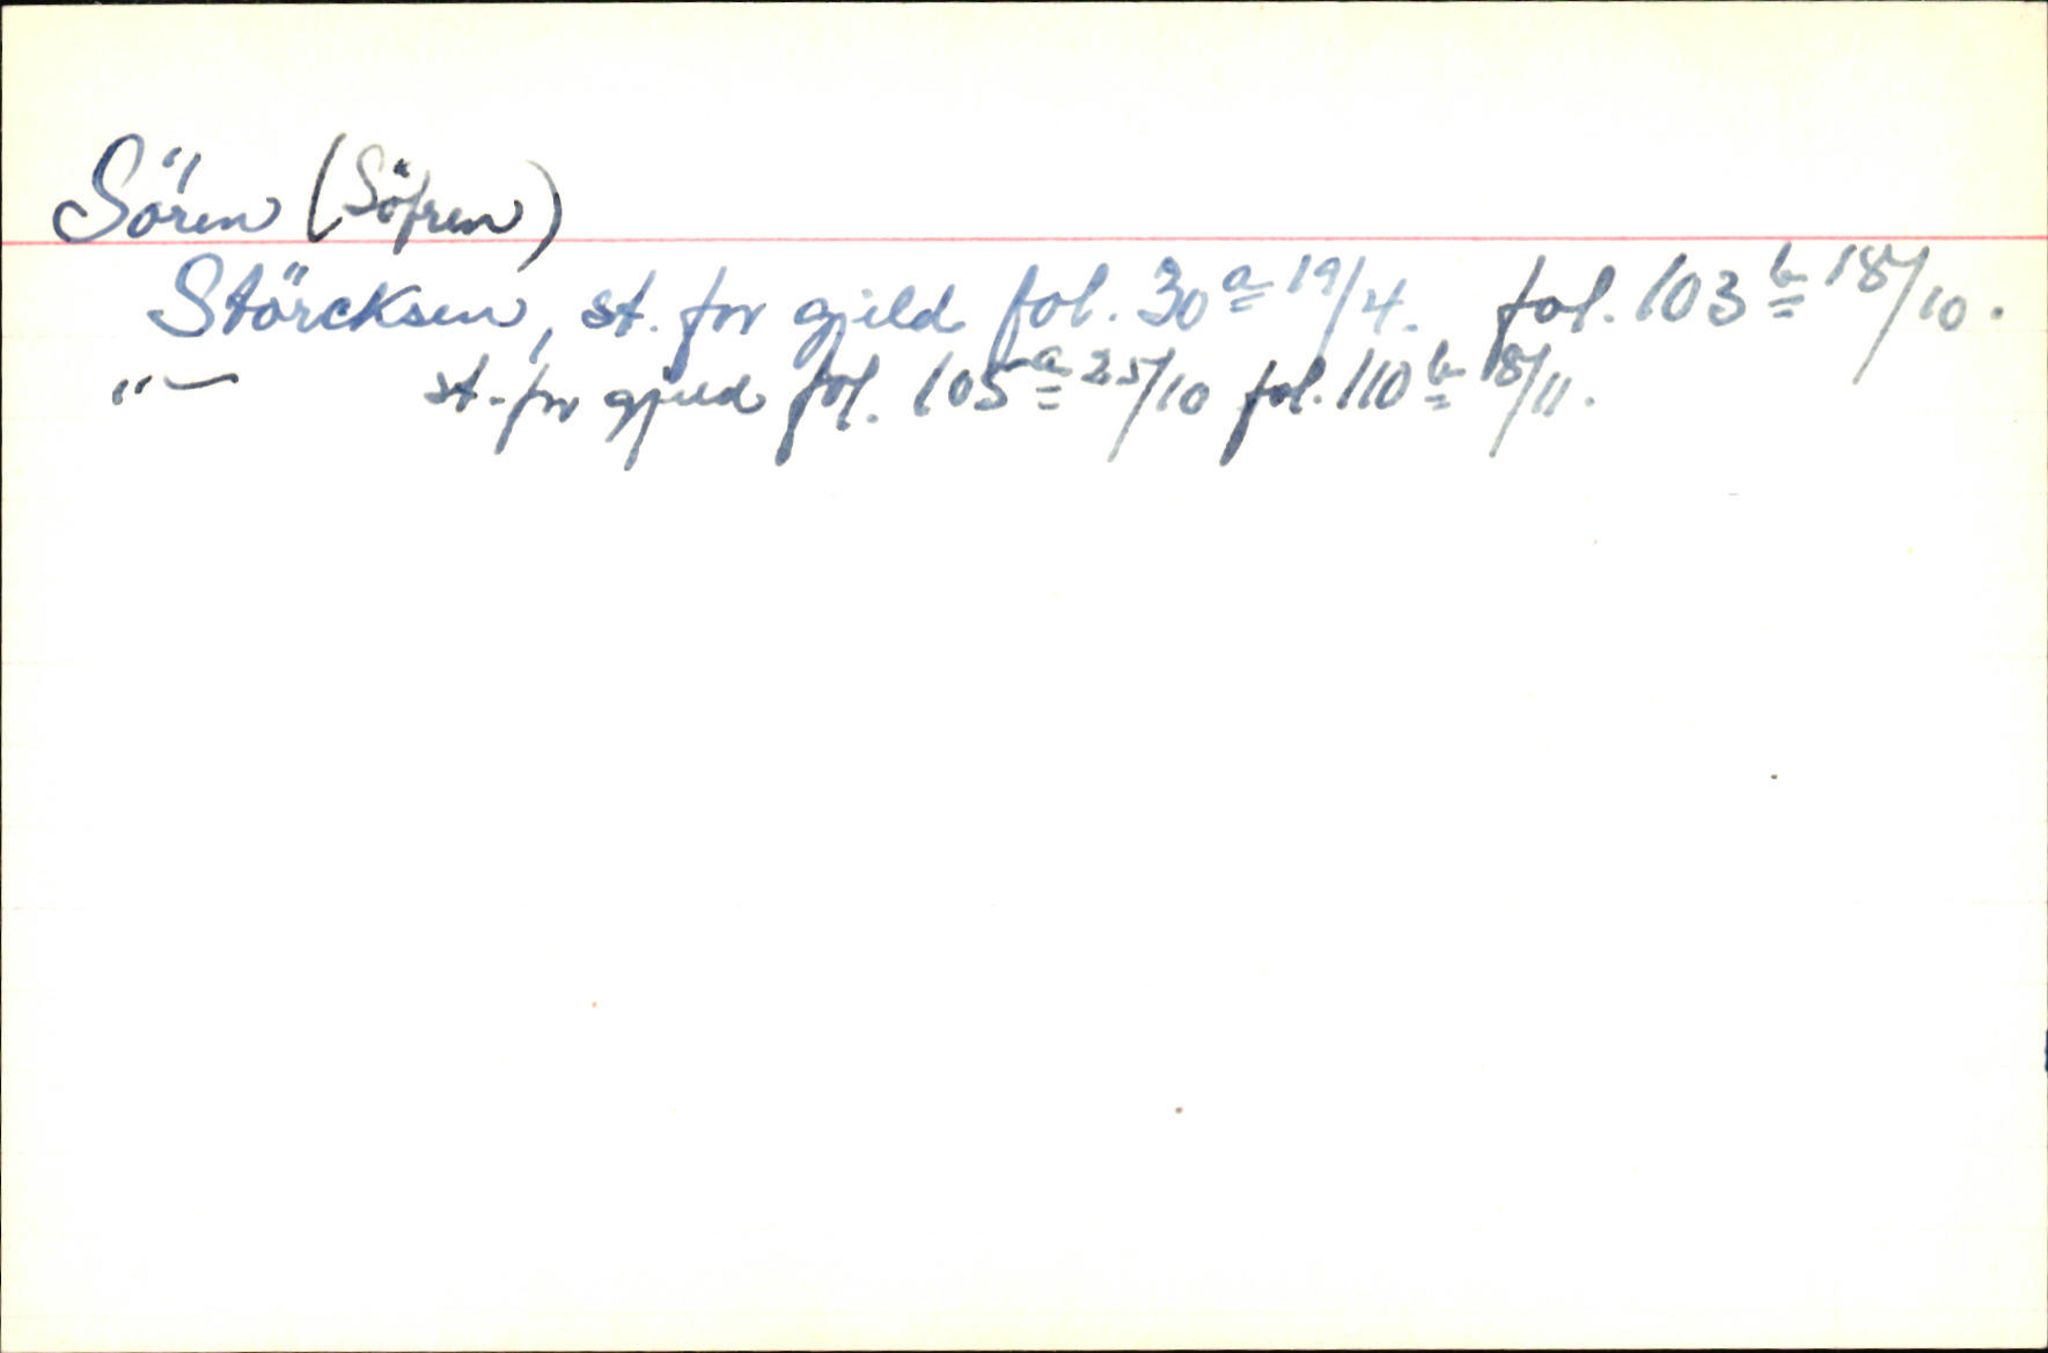 Sören (Söfren)
Störcksen, st. for gjeld fol. 30a 19/4. fol. 103b 18/10.
"— st. for gjeld fol. 105a 25/10 fol. 110b 18/11.